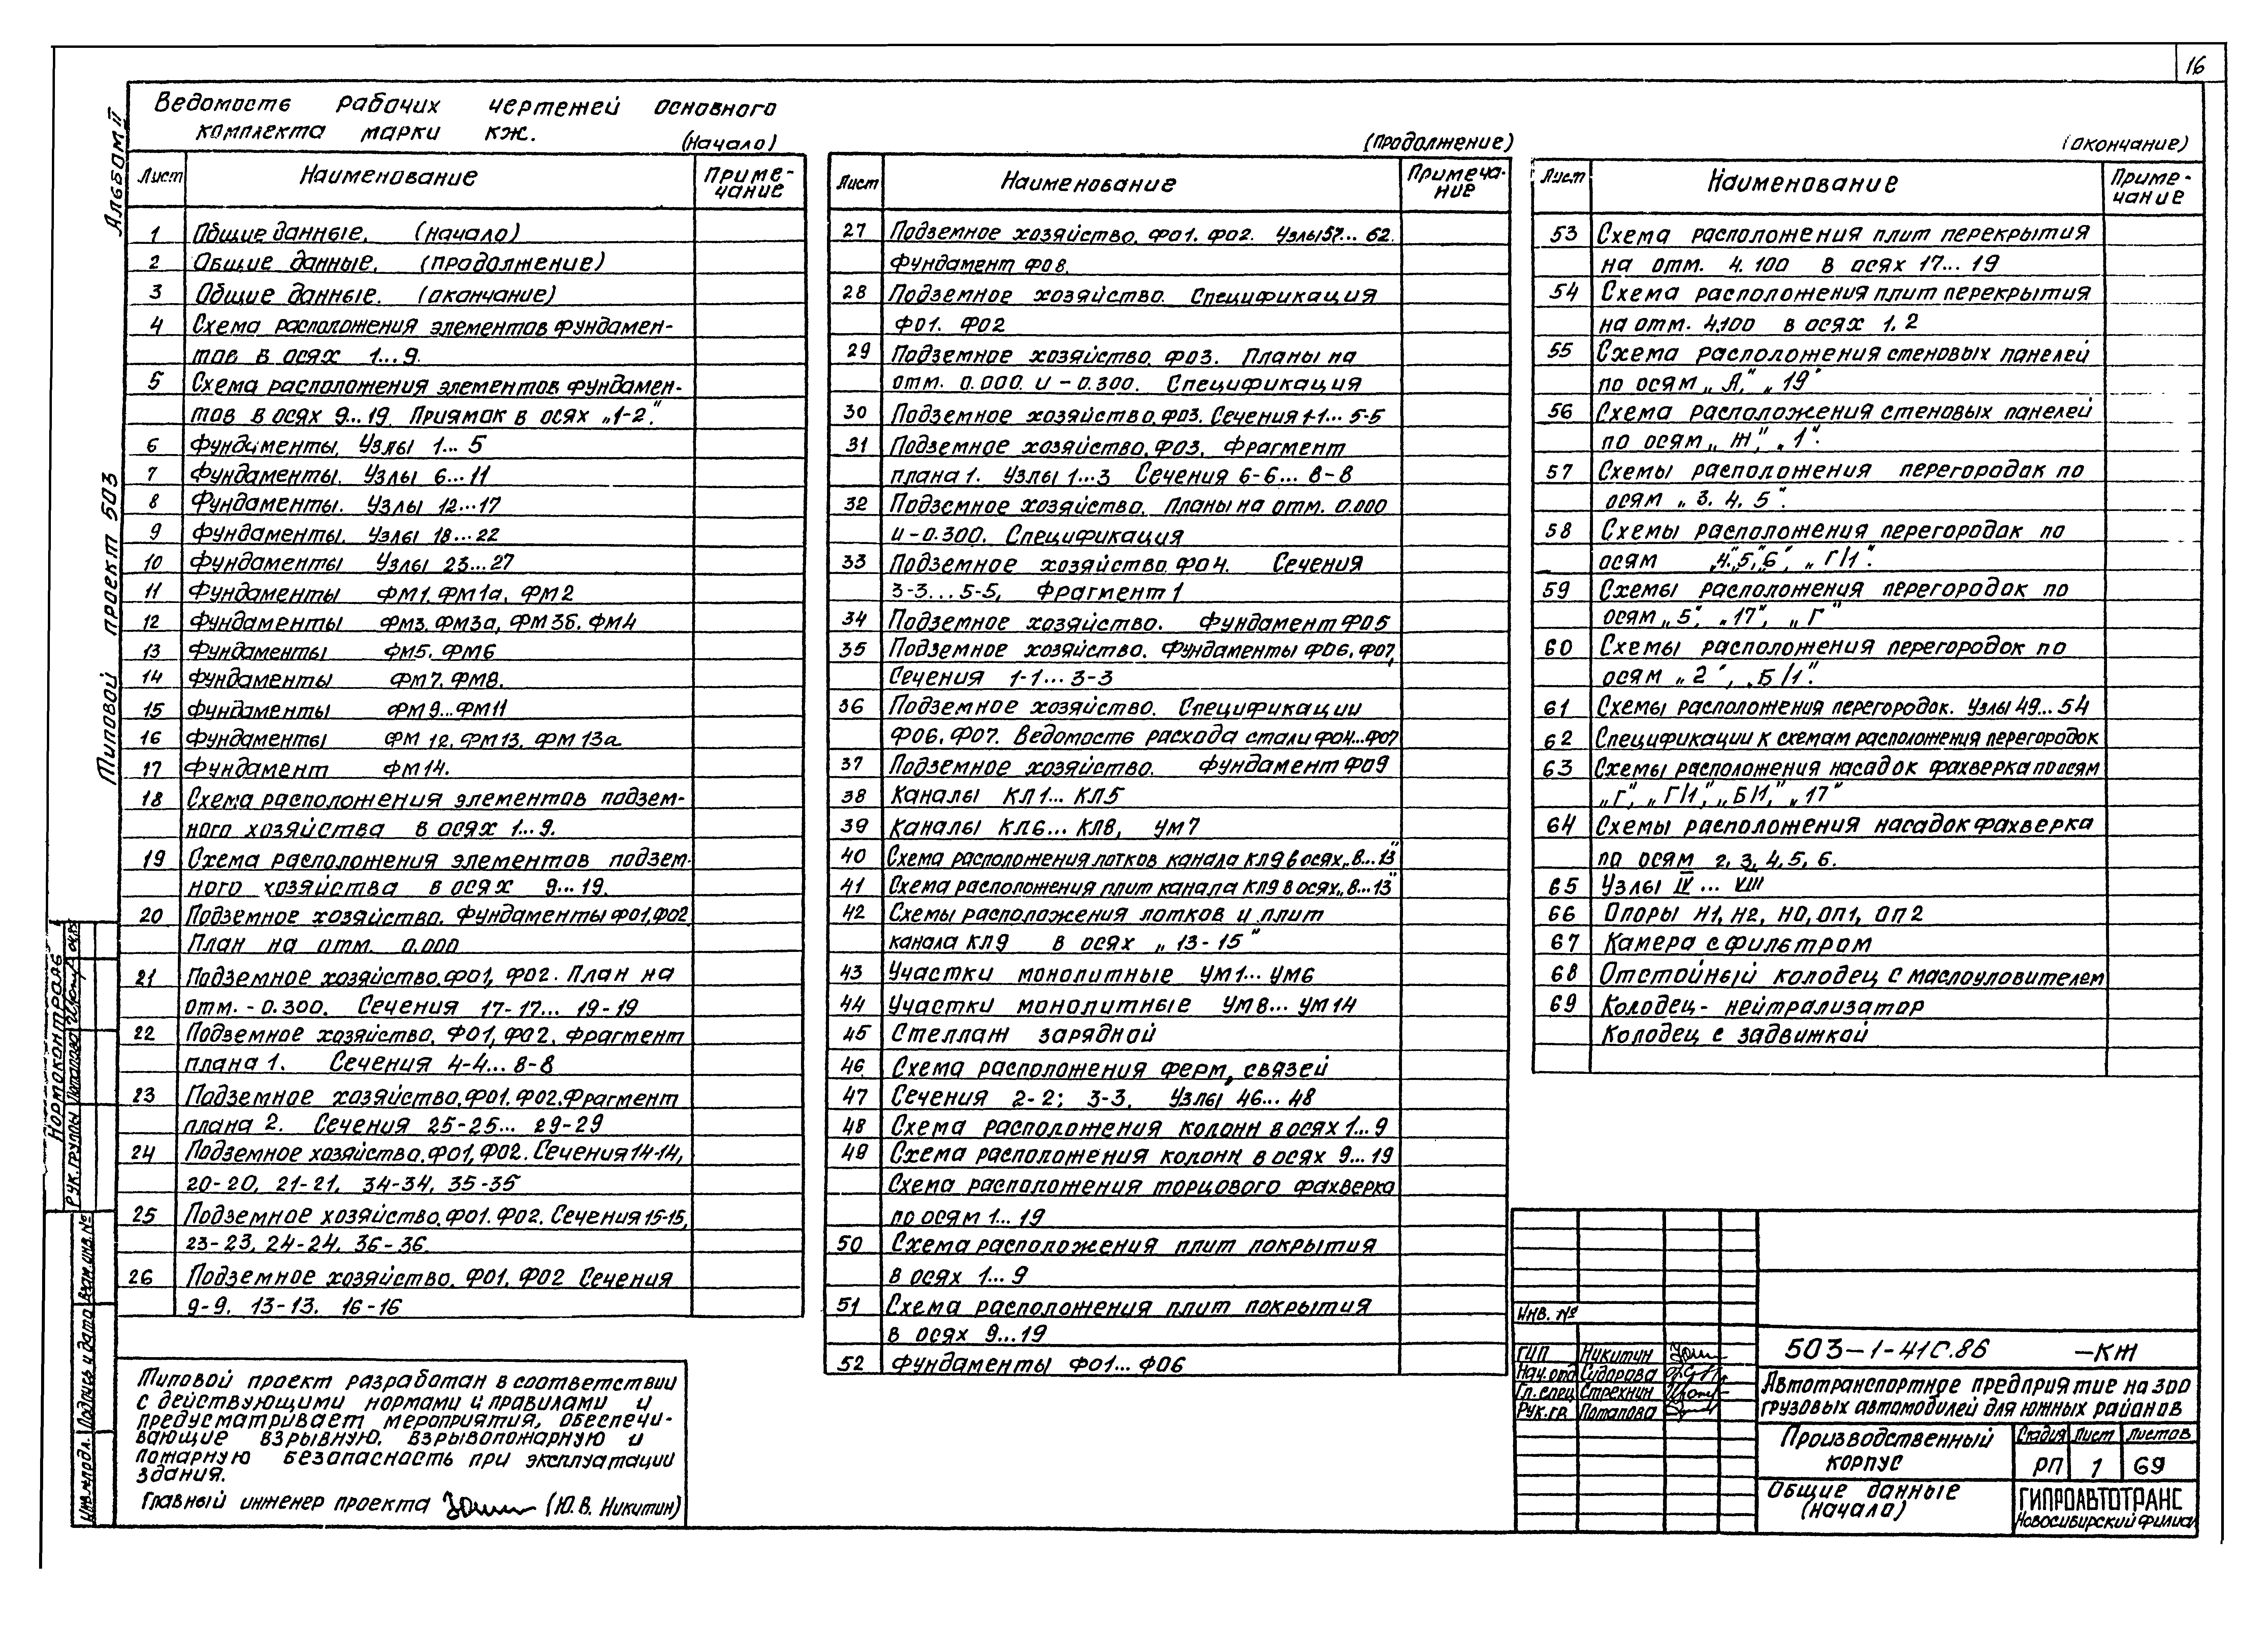 16
Альбом II
Типовой проект 503
Ведомость рабочих чертежей основного
комплекта марки КЖ.
(Начало)
Лист Наименование Приме-
чание
1 Общие данные. (начало)
2 Общие данные. (продолжение)
3 Общие данные. (окончание)
4 Схема расположения элементов фундамен-
тов в осях 1...9.
5 Схема расположения элементов фундамен-
тов в осях 9...19. Приямок в осях „1-2".
6 Фундаменты. Узлы 1...5
7 Фундаменты. Узлы 6...11
8 Фундаменты. Узлы 12...17
9 Фундаменты. Узлы 18...22
10 Фундаменты Узлы 23...27
11 Фундаменты ФМ1, ФМ1а, ФМ2
12 Фундаменты ФМ3, ФМ3а, ФМ3б, ФМ4
13 Фундаменты ФМ5, ФМ6
14 Фундаменты ФМ7, ФМ8.
15 Фундаменты ФМ9...ФМ11
16 Фундаменты ФМ12, ФМ13, ФМ13а
17 Фундамент ФМ14.
18 Схема расположения элементов подзем-
ного хозяйства в осях 1...9.
19 Схема расположения элементов подзем-
ного хозяйства в осях 9...19.
20 Подземное хозяйство. Фундаменты ФО1, ФО2
План на отм. 0.000
21 Подземное хозяйство. ФО1, ФО2. План на
отм. -0.300. Сечения 17-17... 19-19
22 Подземное хозяйство. ФО1, ФО2. Фрагмент
плана 1. Сечения 4-4...8-8
23 Подземное хозяйство. ФО1. ФО2. Фрагмент
плана 2. Сечения 25-25... 29-29
24 Подземное хозяйство. ФО1, ФО2. Сечения 14-14,
20-20, 21-21, 34-34, 35-35
25 Подземное хозяйство. ФО1. ФО2. Сечения 15-15,
23-23, 24-24, 36-36.
26 Подземное хозяйство. ФО1, ФО2 Сечения
9-9, 13-13, 16-16
(продолжение)
Лист Наименование Примеча-
ние
27 Подземное хозяйство. ФО1. ФО2. Узлы 57... 62.
Фундамент ФО8.
28 Подземное хозяйство. Спецификация
ФО1. ФО2
29 Подземное хозяйство. ФО3. Планы на
отм. 0.000. и -0.300. Спецификация
30 Подземное хозяйство. ФО3. Сечения 1-1... 5-5
31 Подземное хозяйство. ФО3. Фрагмент
плана 1. Узлы 1...3 Сечения 6-6... 8-8
32 Подземное хозяйство. Планы на отм. 0.000
и -0.300. Спецификация
33 Подземное хозяйство ФО4. Сечения
3-3...5-5, Фрагмент 1
34 Подземное хозяйство. Фундамент ФО5
35 Подземное хозяйство. Фундаменты ФО6, ФО7,
Сечения 1-1...3-3
36 Подземное хозяйство. Спецификации
ФО6, ФО7. Ведомость расхода стали ФО4...ФО7
37 Подземное хозяйство. Фундамент ФО9
38 Каналы КЛ1... КЛ5
39 Каналы КЛ6... КЛ8, УМ7
40 Схема расположения лотков канала КЛ9 в осях „8...13"
41 Схема расположения плит канала КЛ9 в осях „8...13"
42 Схемы расположения лотков и плит
канала КЛ9 в осях „13-15"
43 Участки монолитные УМ1... УМ6
44 Участки монолитные УМ8... УМ14
45 Стеллаж зарядной
46 Схема расположения ферм, связей
47 Сечения 2-2; 3-3. Узлы 46...48
48 Схема расположения колонн в осях 1...9
49 Схема расположения колонн в осях 9...19
Схема расположения торцового фахверка
по осям 1...19
50 Схема расположения плит покрытия
в осях 1...9
51 Схема расположения плит покрытия
в осях 9...19
52 Фундаменты ФО1... ФО6
(окончание)
Лист Наименование Приме-
чание
53 Схема расположения плит перекрытия
на отм. 4.100 в осях 17...19
54 Схема расположения плит перекрытия
на отм. 4.100 в осях 1. 2
55 Схема расположения стеновых панелей
по осям „А", „19"
56 Схема расположения стеновых панелей
по осям „Ж", „1".
57 Схемы расположения перегородок по
осям „3. 4. 5".
58 Схемы расположения перегородок по
осям „4", „5", „6", „Г/1".
59 Схемы расположения перегородок по
осям „5", „17", „Г"
60 Схемы расположения перегородок по
осям „2", „Б/1".
61 Схемы расположения перегородок. Узлы 49...54
62 Спецификации к схемам расположения перегородок
63 Схемы расположения насадок фахверка по осям
„Г", „Г/1", „Б/1", „17"
64 Схемы расположения насадок фахверка
по осям 2, 3, 4, 5, 6.
65 Узлы IV... VIII
66 Опоры Н1, Н2, НО, ОП1, ОП2
67 Камера с фильтром
68 Отстойный колодец с маслоуловителем
69 Колодец-нейтрализатор
Колодец с задвижкой
Нормоконтроль
Рук. группы Потапова
Инв. № подл. Подпись и дата Взам. инв. №
Типовой проект разработан в соответствии
с действующими нормами и правилами и
предусматривает мероприятия, обеспечи-
вающие взрывную, взрывопожарную и
пожарную безопасность при эксплуатации
здания.
Главный инженер проекта (Ю.В. Никитин)
Инв. №
ГИП Никитин
Нач. отд Сидорова
Гл. спец Стрехнин
Рук. гр. Потапова
503-1-41с.86 -КЖ
Автотранспортное предприятие на 300
грузовых автомобилей для южных районов
Производственный
корпус
Стадия Лист Листов
РП 1 69
Общие данные
(начало)
ГИПРОАВТОТРАНС
Новосибирский филиал